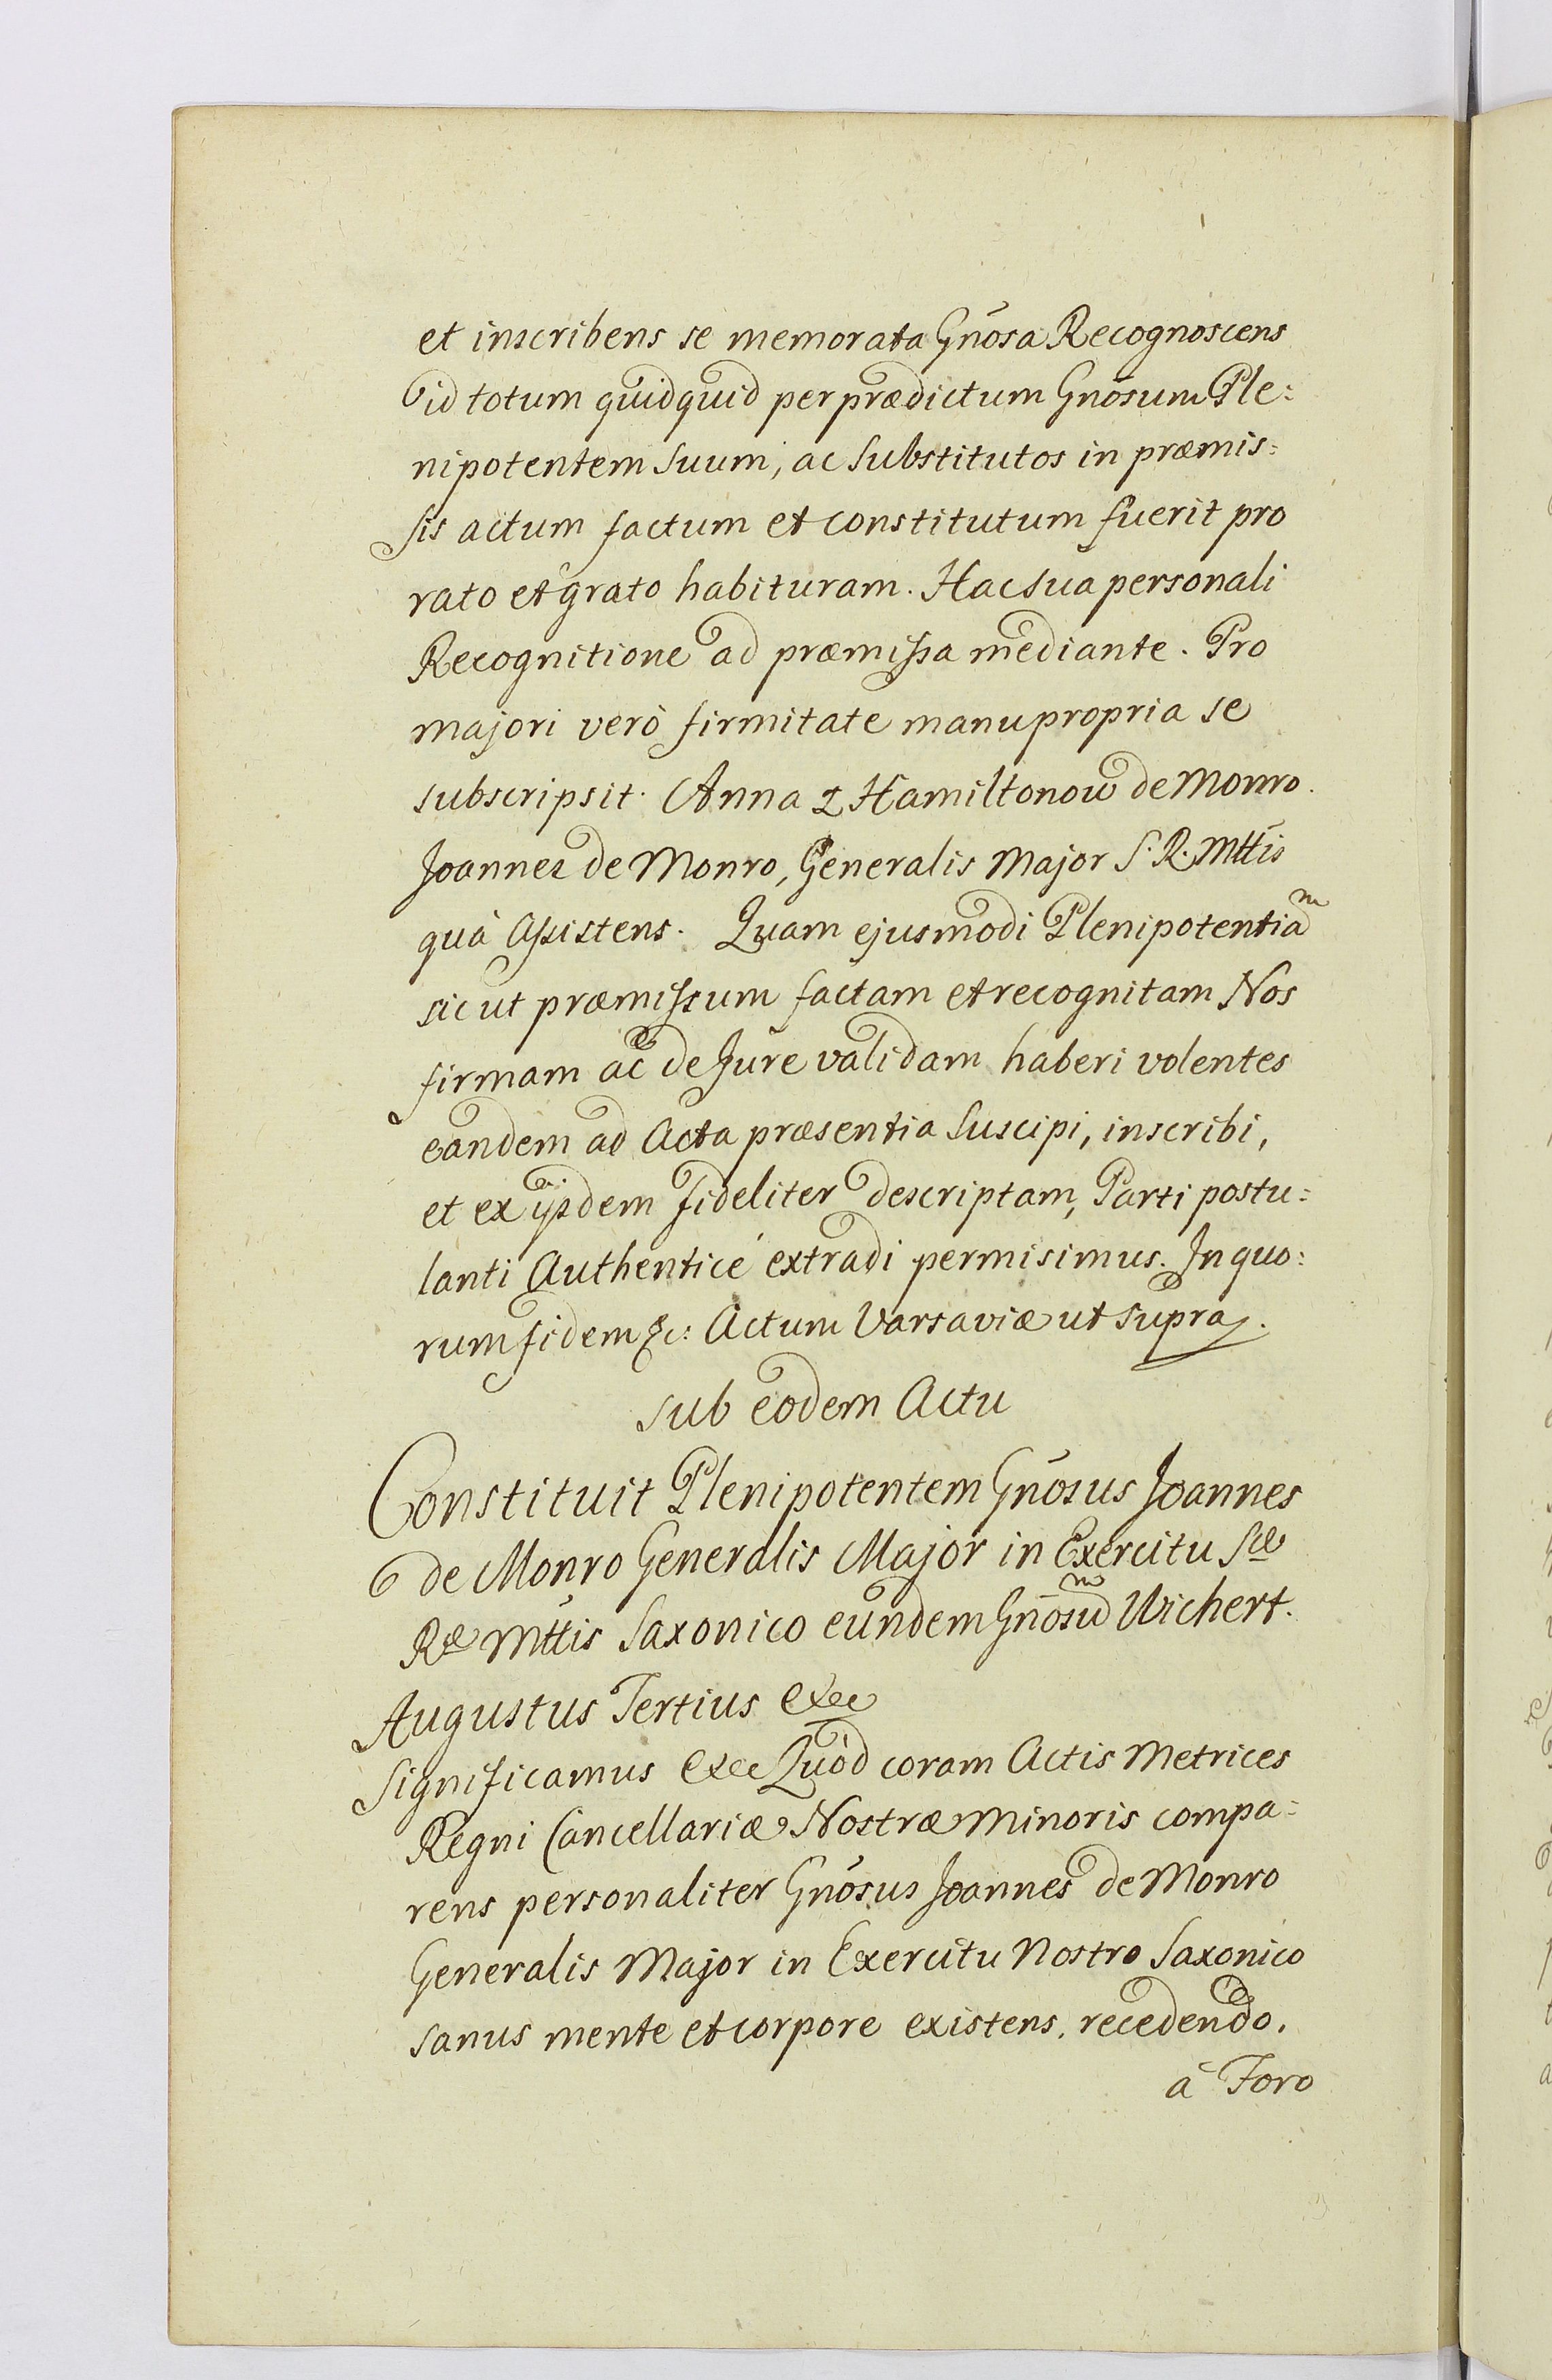 et inscribens se memorata Gnõsa Recognoscens
id totum quidquid per prædictum Gnõsum Ple:
nipotentem suum, ac substitutos in præmis:
sis actum factum et constitutum fuerit pro
rato et grato habituram. Hac sua personali
Recognitione ad præmissa mediante. Pro
majori verò firmitate manu propria se
subscripsit. Anna z Hamiltonow de Monro.
Joannes de Monro, Generalis Major S. R. Mttis
quà Assistens. Quam ejusmodi Plenipotentiam
sic ut præmissum factam et recognitam Nos
firmam ac de Jure validam haberi volentes
eandem ad Acta præsentia suscipi, inscribi,
et ex ijsdem fideliter descriptam, Parti postu:
lanti Authenticé extradi permisimus. In quo:
rum fidem &c: Actum Varsaviæ ut supra.
sub eodem Actu
Constituit Plenipotentem Gnõsus Joannes
de Monro Generalis Major in Exercitu Sæ
Ræ Mttis Saxonico eundem Gnõsum Wichert.
Augustus Tertius &cc
Significamus &cc Quòd coram Actis Metrices
Regni Cancellariæ Nostræ Minoris compa:
rens personaliter Gnõsus Joannes de Monro
Generalis Major in Exercitu Nostro Saxonico
sanus mente et corpore existens, recedendo,
à Foro